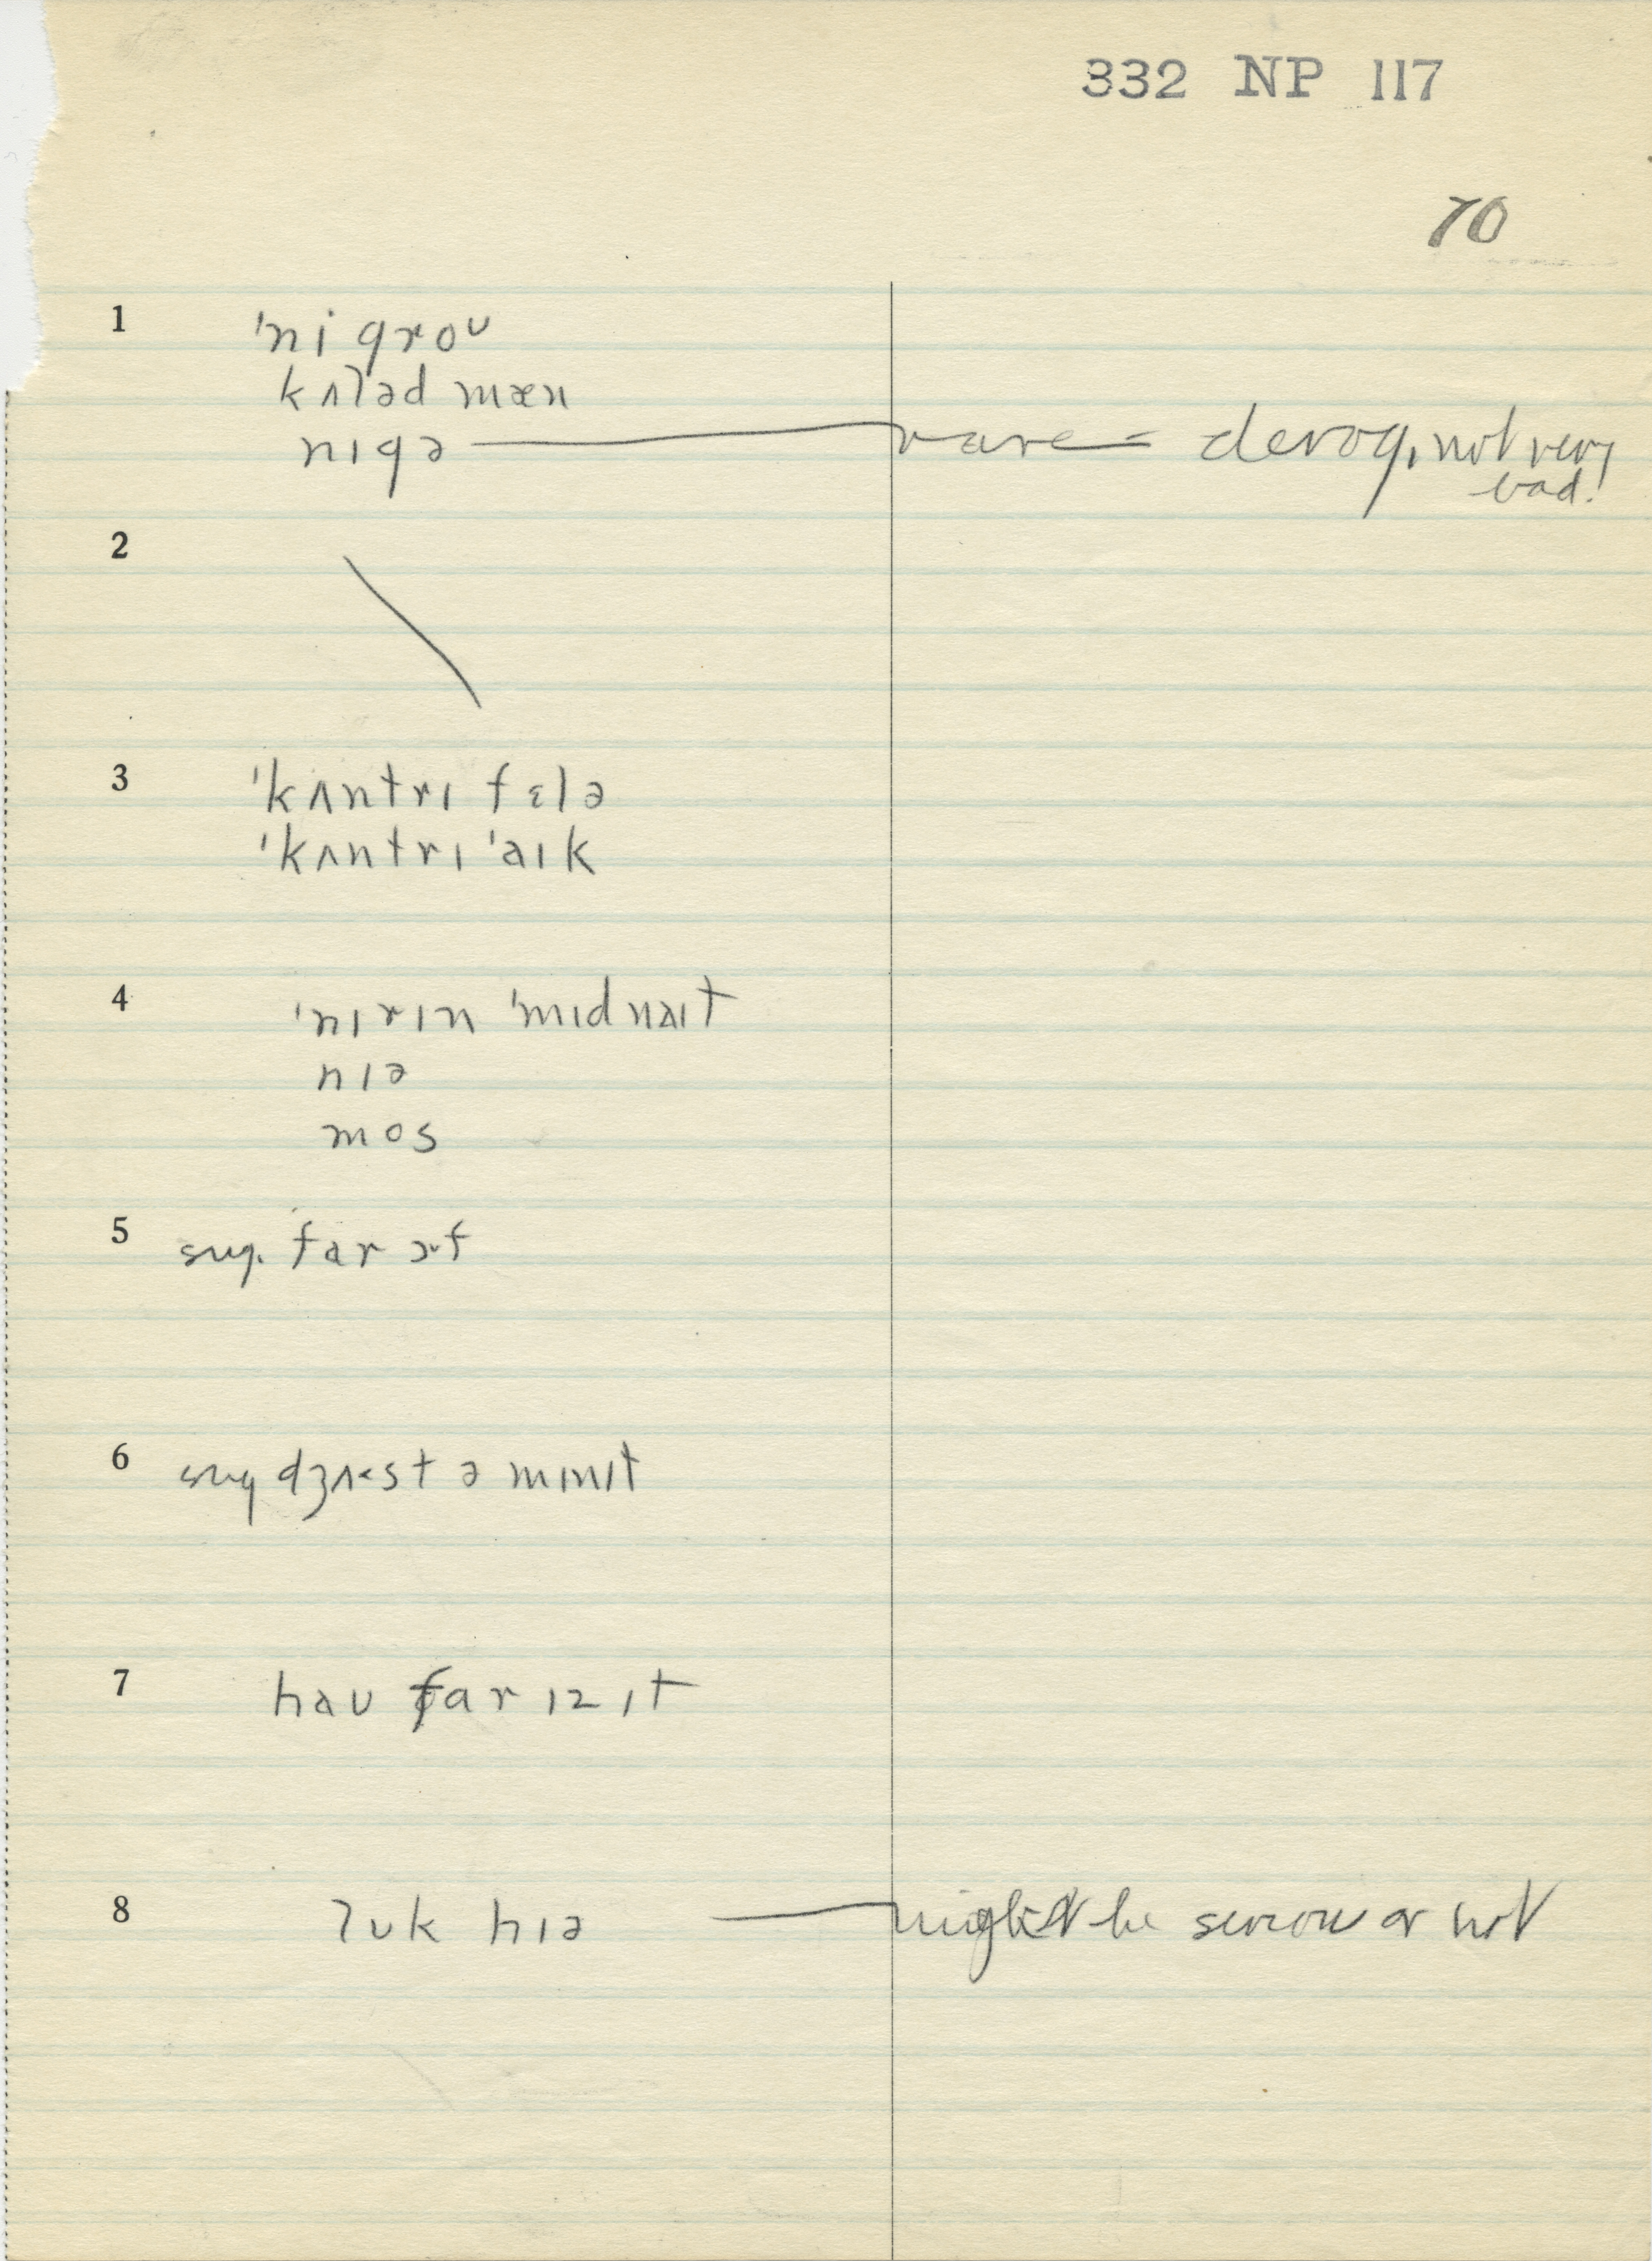 332 NP 117
70
1 ˈni groʊ
kʌləd mæn
nɪgə — rare = derog, not very bad!
2
3 ˈkʌntrɪ fɛlə
ˈkʌntrɪ ˈaɪk
4 ˈnɪrɪn ˈmɪdnaɪt
nɪə
mos
5 sug. far ɔf
6 sug dʒʌst ə mɪnɪt
7 haʊ far ɪz ɪt
8 lʊk hɪə — might be serious or not